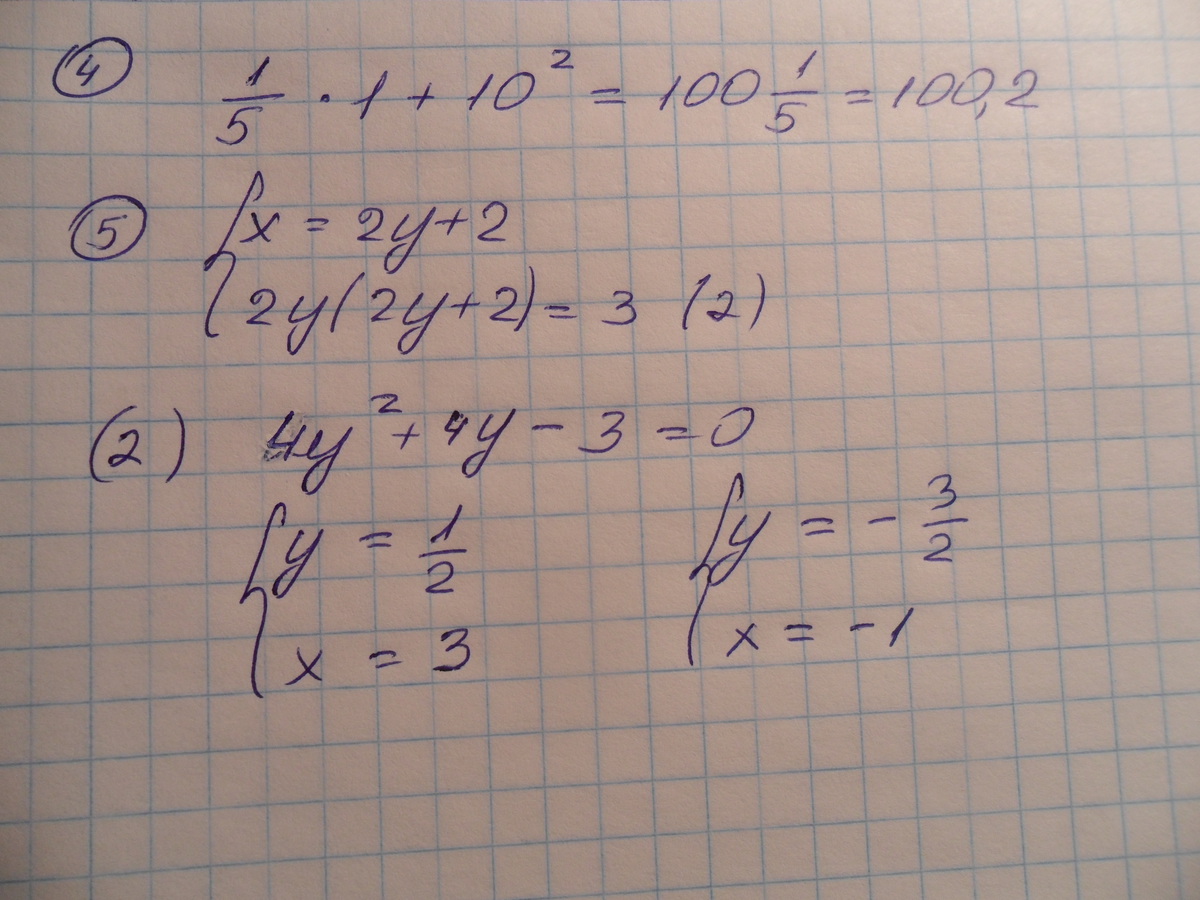 ④ 1/5 · 1 + 10² = 100 1/5 = 100,2
⑤ { x = 2y + 2
{ 2y(2y+2) = 3 (2)
(2) 4y² + 4y - 3 = 0
{ y = 1/2 { y = - 3/2
{ x = 3 { x = -1